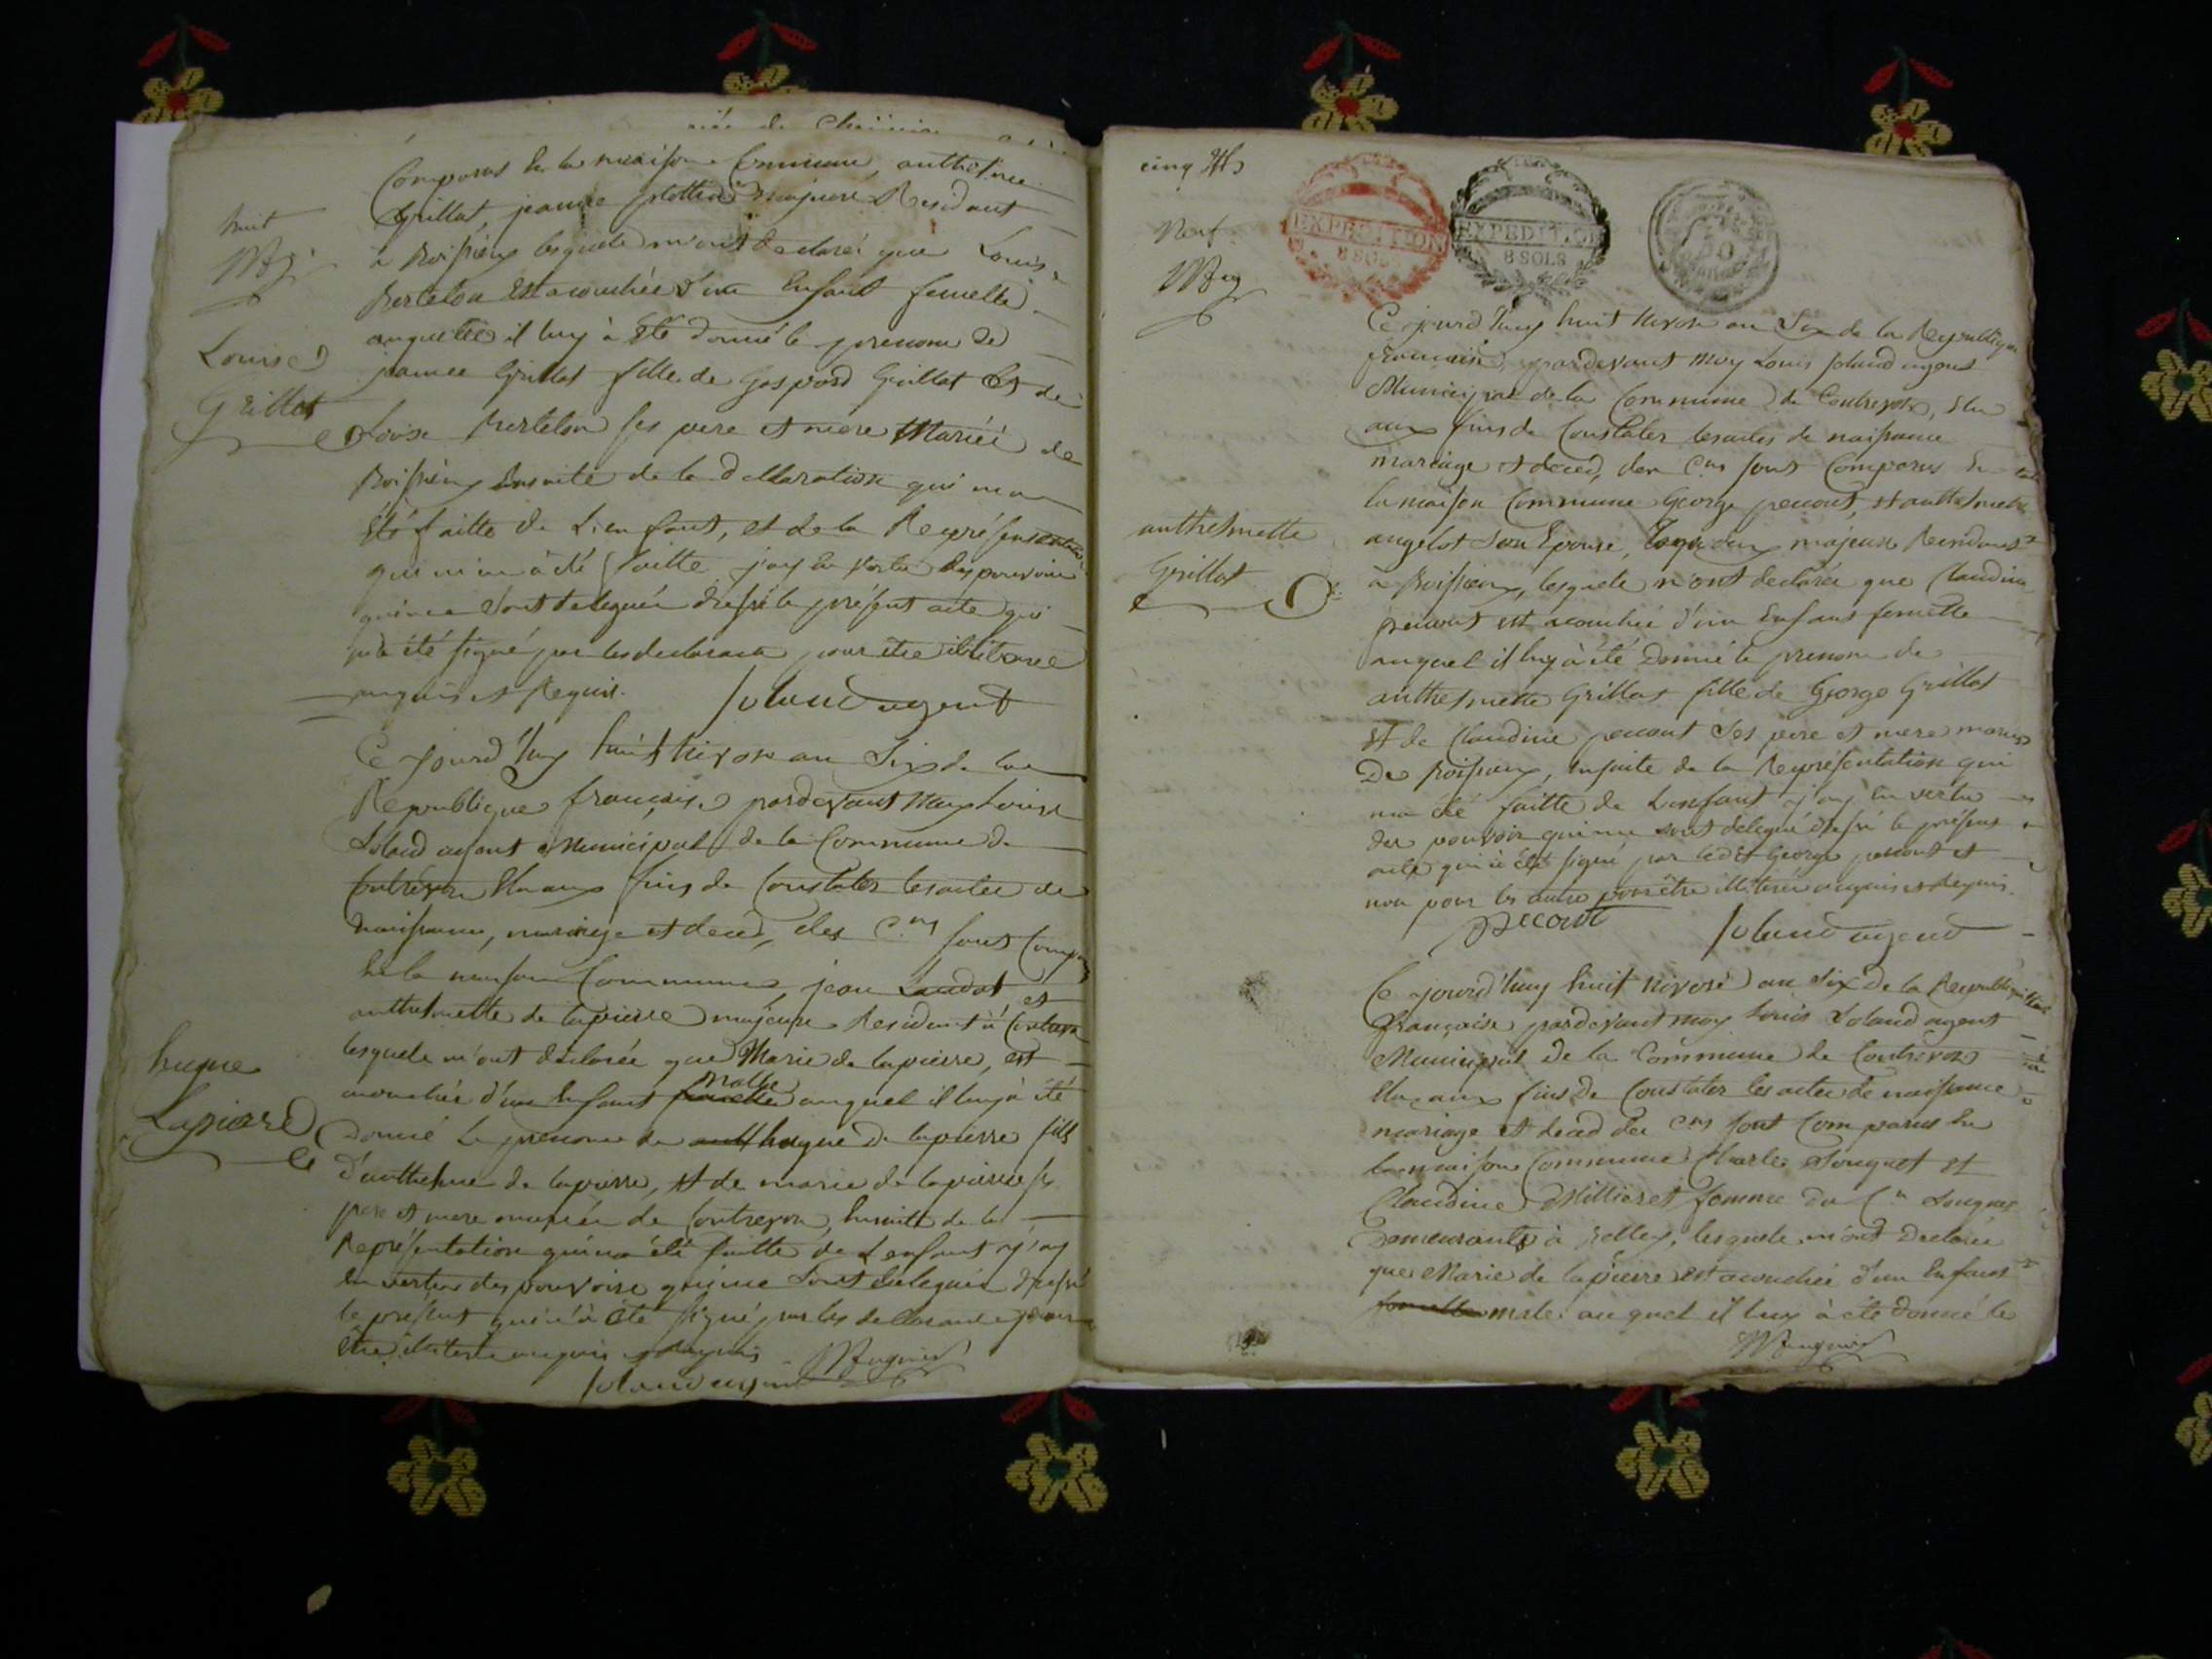 huit
Louise
Grillot
hugue
Lapierre
Comparus En la maison Commune, anthelmee
Grillat, jeanne majeure Residant
à Poissieux lesquels m'ont declaré que Louise
Bertelon Est acouchée d'un Enfant femelle
auquelle il luy à Eté donné le prenom de
jannee Grillat fille de Gaspard Grillat Et de
Loise Bertelon ses pere et mere Mariéé de
Poissieux Ensuite de la declaration qui m'a
été faitte de L'enfant, et de la Représentation
qui m'en à été faitte j'ay En vertu des pouvoirs
qui me sont delegués dressé le présent acte qui
n'a été signé par les declarans pour être illiteré
enquis et Requis. Joland agent
Ce Jourd'huy huit Nivose an Six de la
Republique française pardevant Moy Louis
Joland agent Municipal de la Commune de
Contrevoz Elu aux fins de Constater les actes de
naissance, mariage et deced, des C.ens sont Compa
En la maison Commune jean Laudat et
anthelmette de lapierre majeurs Residant à Contrevoz
lesquels m'ont déclarée que Marie de lapierre, est
acouchée d'un Enfant femelle malle auquel il luy à été
Donné Le prenom de hugue De lapierre fils
d'anthelme de lapierre, et de marie de lapierre ses
pere et mere mariéé de Contrevoz, Ensuite de la
Représentation qui m'a été faitte de L'enfant j'ay
En vertu des pouvoirs qui me sont delegués dressé
le présent qui n'à été signé par les declarans pour
être illiteré enquis et requis
Joland agent
cinq
Neuf
anthelmette
Grillat
EXPEDITION
8 SOLS
EXPEDITION
8 SOLS
50
Ce jourd'huy huit Nivose an Six de la Republique
francaise, pardevant Moy Louis Joland agent
Municipal de la Commune de Contrevoz, Elu
aux fins de Constater les actes de naissance
mariage et deced, des C.ens sont Comparus En
la maison Commune George pecout, et anthelmette
angelot son Epouse, Tous deux majeurs Residants
à Poissieux, lesquels m'ont declarée que Claudine
pecout est acouchée d'un Enfant femelle
auquel il luy à été Donné le prenom de
anthelmette Grillat fille de George Grillat
Et de Claudine pecout Ses pere et mere mariés
De Poissieux, Ensuite de la Représentation qui
m'a été faitte de L'enfant j'ay En vertu
des pouvoir qui me sont delegué dressé le présent
acte qui à été signé par ledit George pecout et
non pour les autre pour être illiteré enquis et requis.
Pecout Joland agent
Ce jourd'huy huit nivose an Six de la Republique
française pardevant moy Louis Joland agent
Municipal De la Commune de Contrevoz
Elu aux fins De Constater les actes de naissance
mariage et deced des C.ens sont Comparus En
la maison Commune Charles Souquet et
Claudine Millieret femme du C.en Souquet
Demeurants à lesquels m'ont Declarée
que Marie de lapierre est acouchée d'un Enfant
femelle male auquel il luy à été donné le